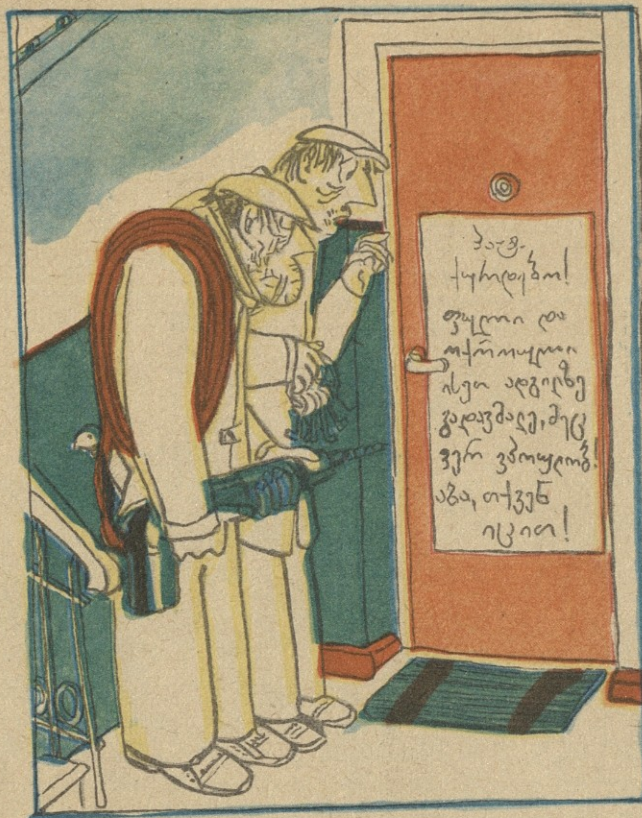 პატ.
ქურდებო!
ფული და
ოქროული
ისეთ ადგილზე
გადავმალე, მეც
ვერ ვპოულობ!
აბა, თქვენ
იცით!